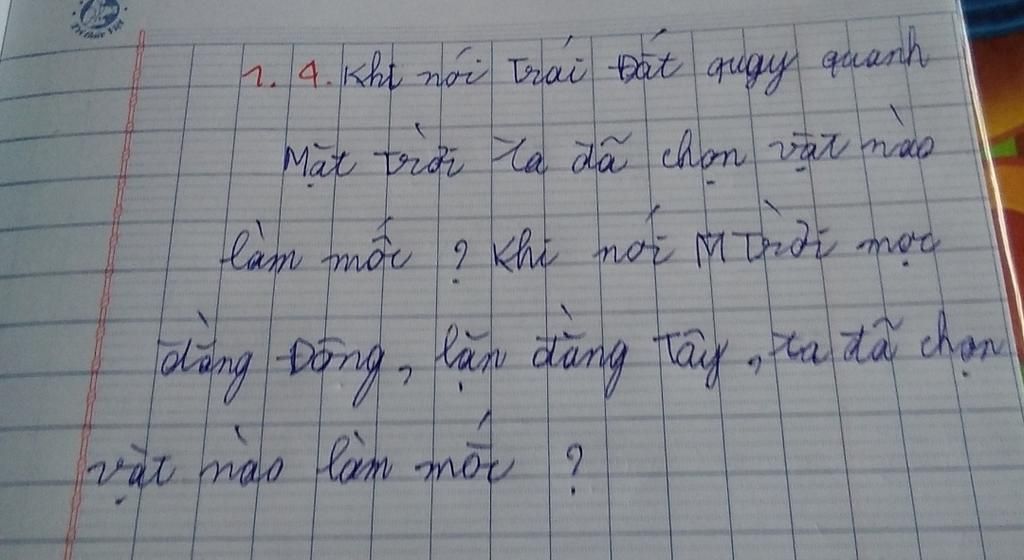 Tri thức Việt
1. 4. Khi nói Trái Đất quay quanh
Mặt trời ta đã chọn vật nào
làm mốc ? Khi nói M Trời mọc
đằng Đông, lặn đằng Tây, ta đã chọn
vật nào làm mốc ?